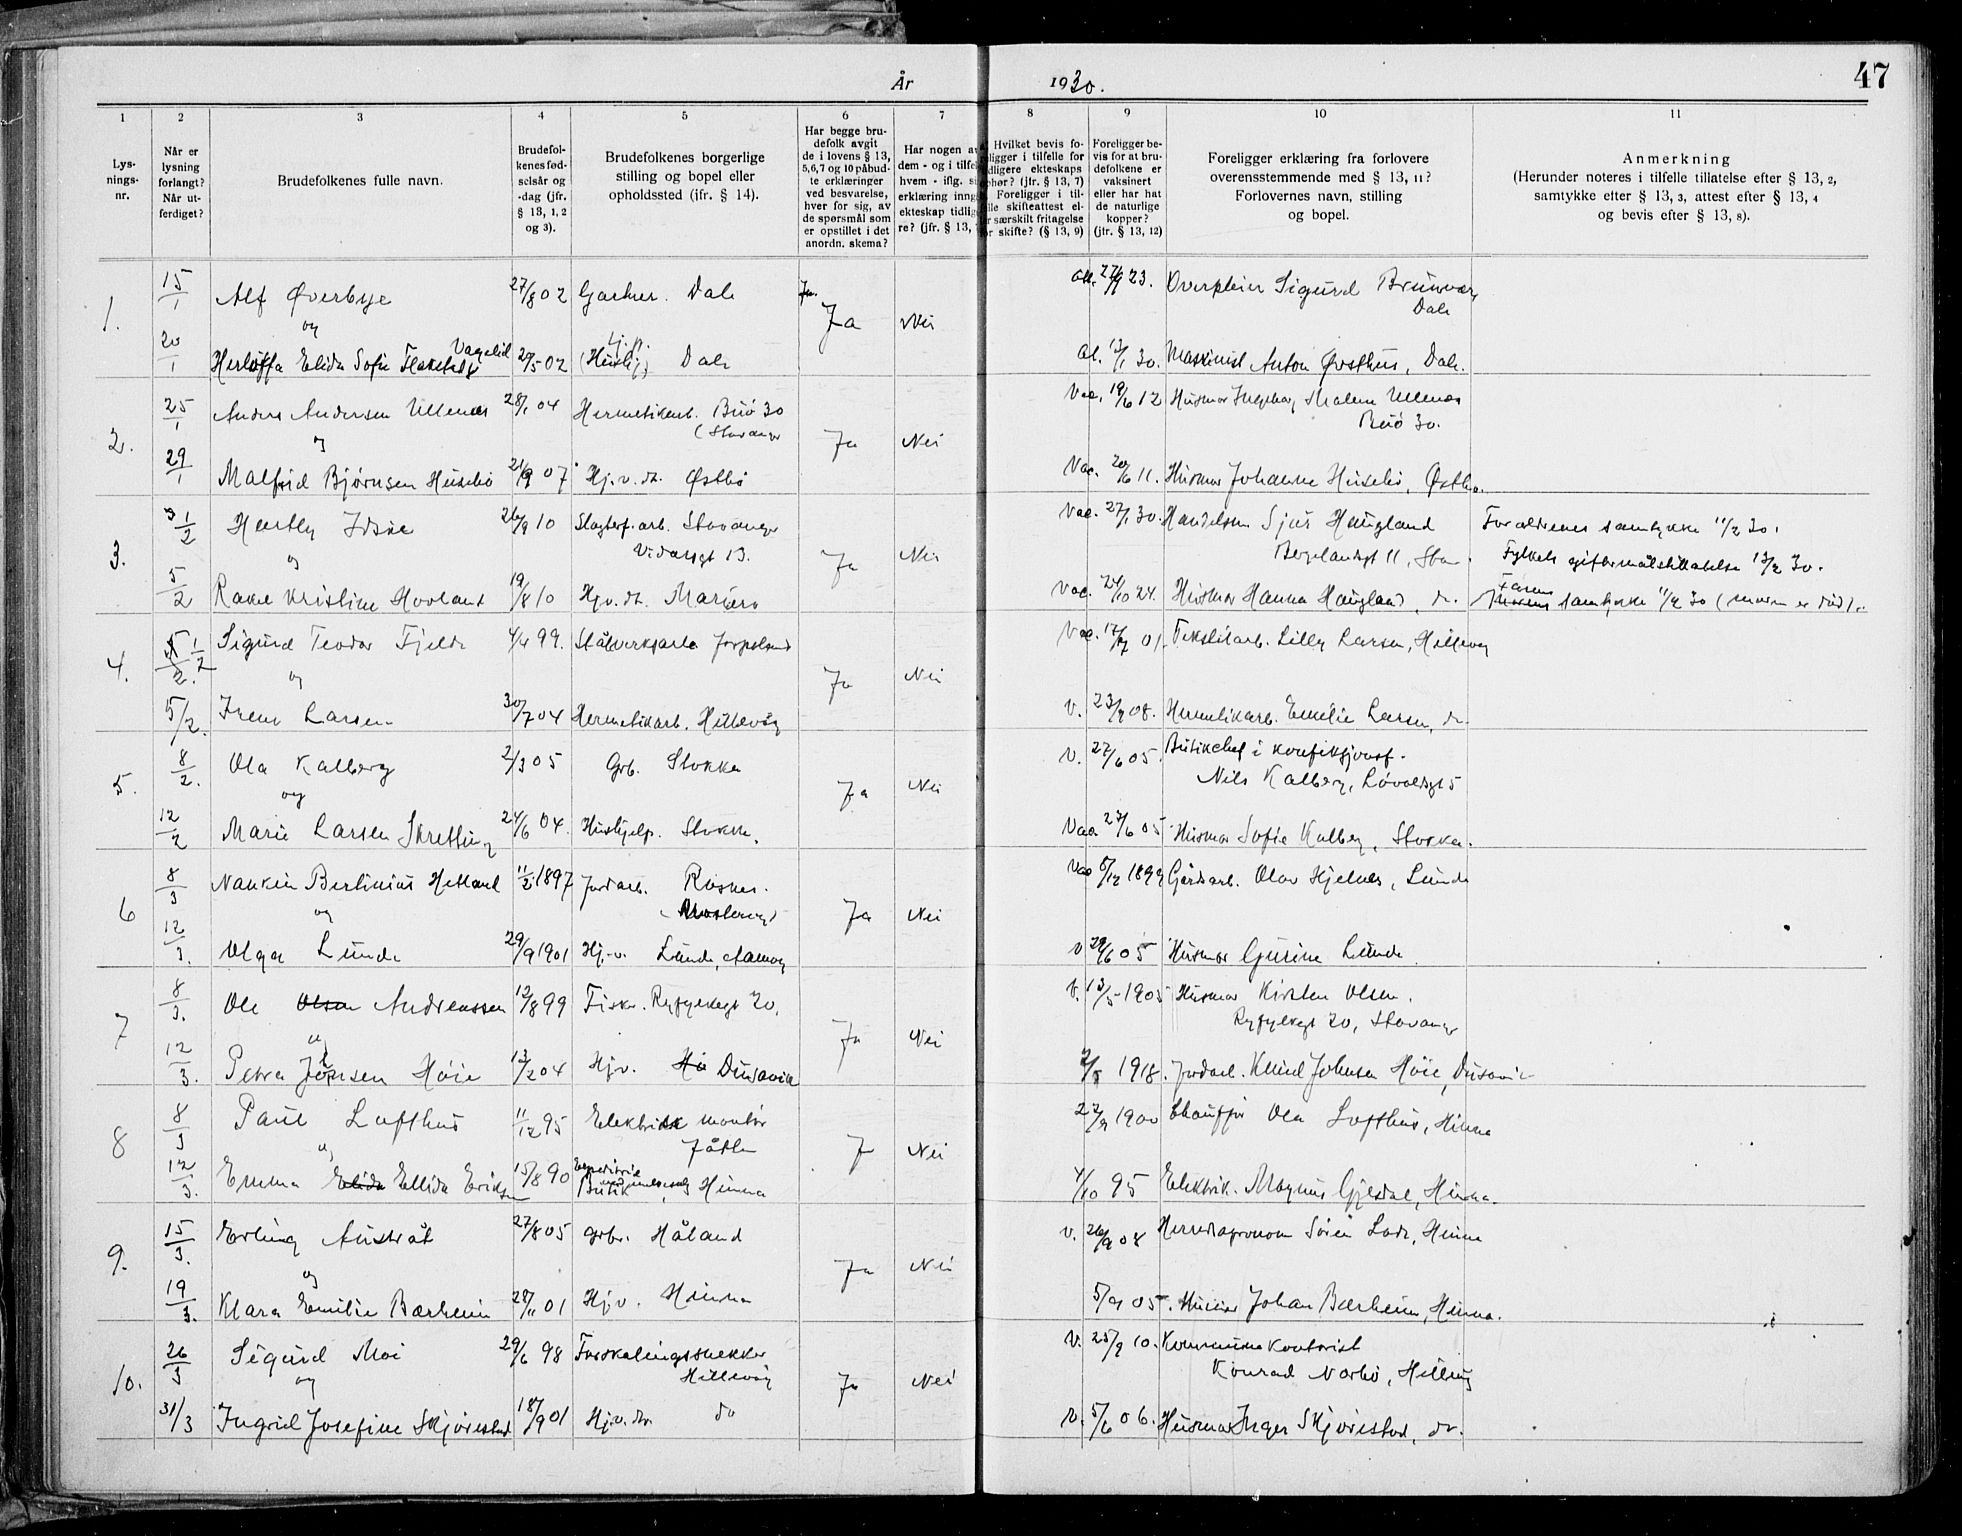 År 1930.
47
1 2 3 4 5 6 7 8 9 10 11
Lysnings-nr.
Når er lysning forlangt? Når utferdiget?
Brudefolkenes fulle navn.
Brudefolkenes fødselsår og -dag (jfr. § 13, 1, 2 og 3).
Brudefolkenes borgerlige stilling og bopel eller opholdssted (jfr. § 14).
Har begge brudefolk avgit de i lovens § 13, 5,6,7 og 10 påbudte erklæringer ved besvarelse, hver for sig, av de spørsmål som er opstillet i det anordn. skema?
Har nogen av dem - og i tilfelle hvem - iflg.
erklæring inngått ekteskap tidligere? (jfr. § 13,
Hvilket bevis foreligger i tilfelle for tidligere ekteskaps ophør? (jfr. § 13, 7) Foreligger i tilfelle skifteattest eller særskilt fritagelse for skifte? (§ 13, 9)
Foreligger bevis for at brudefolkene er vaksinert eller har hat de naturlige kopper? (jfr. § 13, 12)
Foreligger erklæring fra forlovere overensstemmende med § 13, 11? Forlovernes navn, stilling og bopel.
Anmerkning (Herunder noteres i tilfelle tillatelse efter § 13, 2, samtykke efter § 13, 3, attest efter § 13, 4 og bevis efter § 13, 8).
1. 15/1 Alf Øverbye 27/8 02 Gartner. Dale Ja Nei 23. Sigurd Dale
og
20/1 Elida Sofie 29/5 02 Dale 30. Maskinist Anton Østhus, Dale.
2. 25/1 Anders Andersen Ullenes 28/1 04 Hermetikarb. Buø 30 (Stavanger Ja Nei Vac. 19/6 12 Husmor Ingeborg Malene Ullenes Buø 30.
og
29/1 Malfrid Bjørnsen Husebø 21/9 07 Hj.v.dt. Østbø Vac. 20/6 11. Husmor Johanne Husebø, Østbø.
3. 1/2 Idsøe 26/9 10 Stavanger Vidarsgt 13. Ja Nei Vac. 27/1 30. Sjur Haugland Bergelandsgt 11, Stav. Forældrenes samtykke 11/2 30.
og
Fylkets giftermålstillatelse 13/2 30.
5/2 Rakel Kristine Hovland 19/8 10 Hj.v.dt. Mariero Vac. 24/10 24. Husmor Hanna Haugland, do. Farens samtykke 11/2 30 (moren er død).
4. 1/2 Sigurd Teodor Fjelde 4/4 99. Stålverksarb. Jørpeland Ja Nei Vac. 01. Tekstilarb. Lilly Larsen, Hillevåg
og
5/2. Irene Larsen 30/7 04 Hermetikarb. Hillevåg V. 08. Hermetikarb. Emilie Larsen, do.
5. 8/2. Ola Kalberg 2/3 05 Grb. Stokka Ja Nei V. 27/6 05. Butikchef i konfeksjonsf. Nils Kalberg, Løvoldsgt 5
og
12/2 Marie Larsen Skretting 24/6 04. Hushjelp. Stokka. Vac 27/6 05 Husmor Sofie Kalberg, Stokka.
6 8/3 Nankin Bertinius Hetland 11/2 1897 Jordarb. Ja Nei Vac 5/12 1899 Gårdsarb. Olav Hjelnes, Lunde
og
12/3. Olga Lunde 29/9 1901 Hj.v. Lunde, V 29/6 05 Husmor Gurine Lunde
7 8/3. Ole Olsen Andreassen 12/8 99 Fisker. Ryfylkegt 20. Ja Nei V. 13/5 1905 Husmor Kirsten Olsen. Ryfylkegt 20, Stavanger
og
12/3. Petra Jonsen Høie 13/2 04 Hj.v. Dusavik 1918. Jordarb. Knud Johnsen Høie, Dusavik
8 8/3 Paul Lofthus 11/12 95 Elektrisk montør Jåtten J Nei 27/9 1900 Chauffør Ola Lofthus, Hinna
og
12/3. Emma Elida Ellida Eriksen 15/8 90 Butik Hinna 4/10 95 Elektrik. Magnus Gjesdal, Hinna.
9. 15/3. Erling Austråt 27/8 05 Grbr. Håland Ja Nei V. 26/9 08 Herredsagronom Søren Lode, Hinna
og
19/3. Klara Emilie Bærheim 28/11 01 Hj.v. Hinna 5/9 05. Johan Bærheim, Hinna.
10. 26/3 Sigurd Moi 29/6 98 Forskalingssnekker Hillevåg Ja Nei V. 25/9 10. Kommunekontorist Konrad Norbø, Hillevåg
og
31/3 Ingrid Josefine Skjørestad 18/9 01 Hj.v.dtr. do V. 5/6 06. Husmor Inger Skjørestad, do.